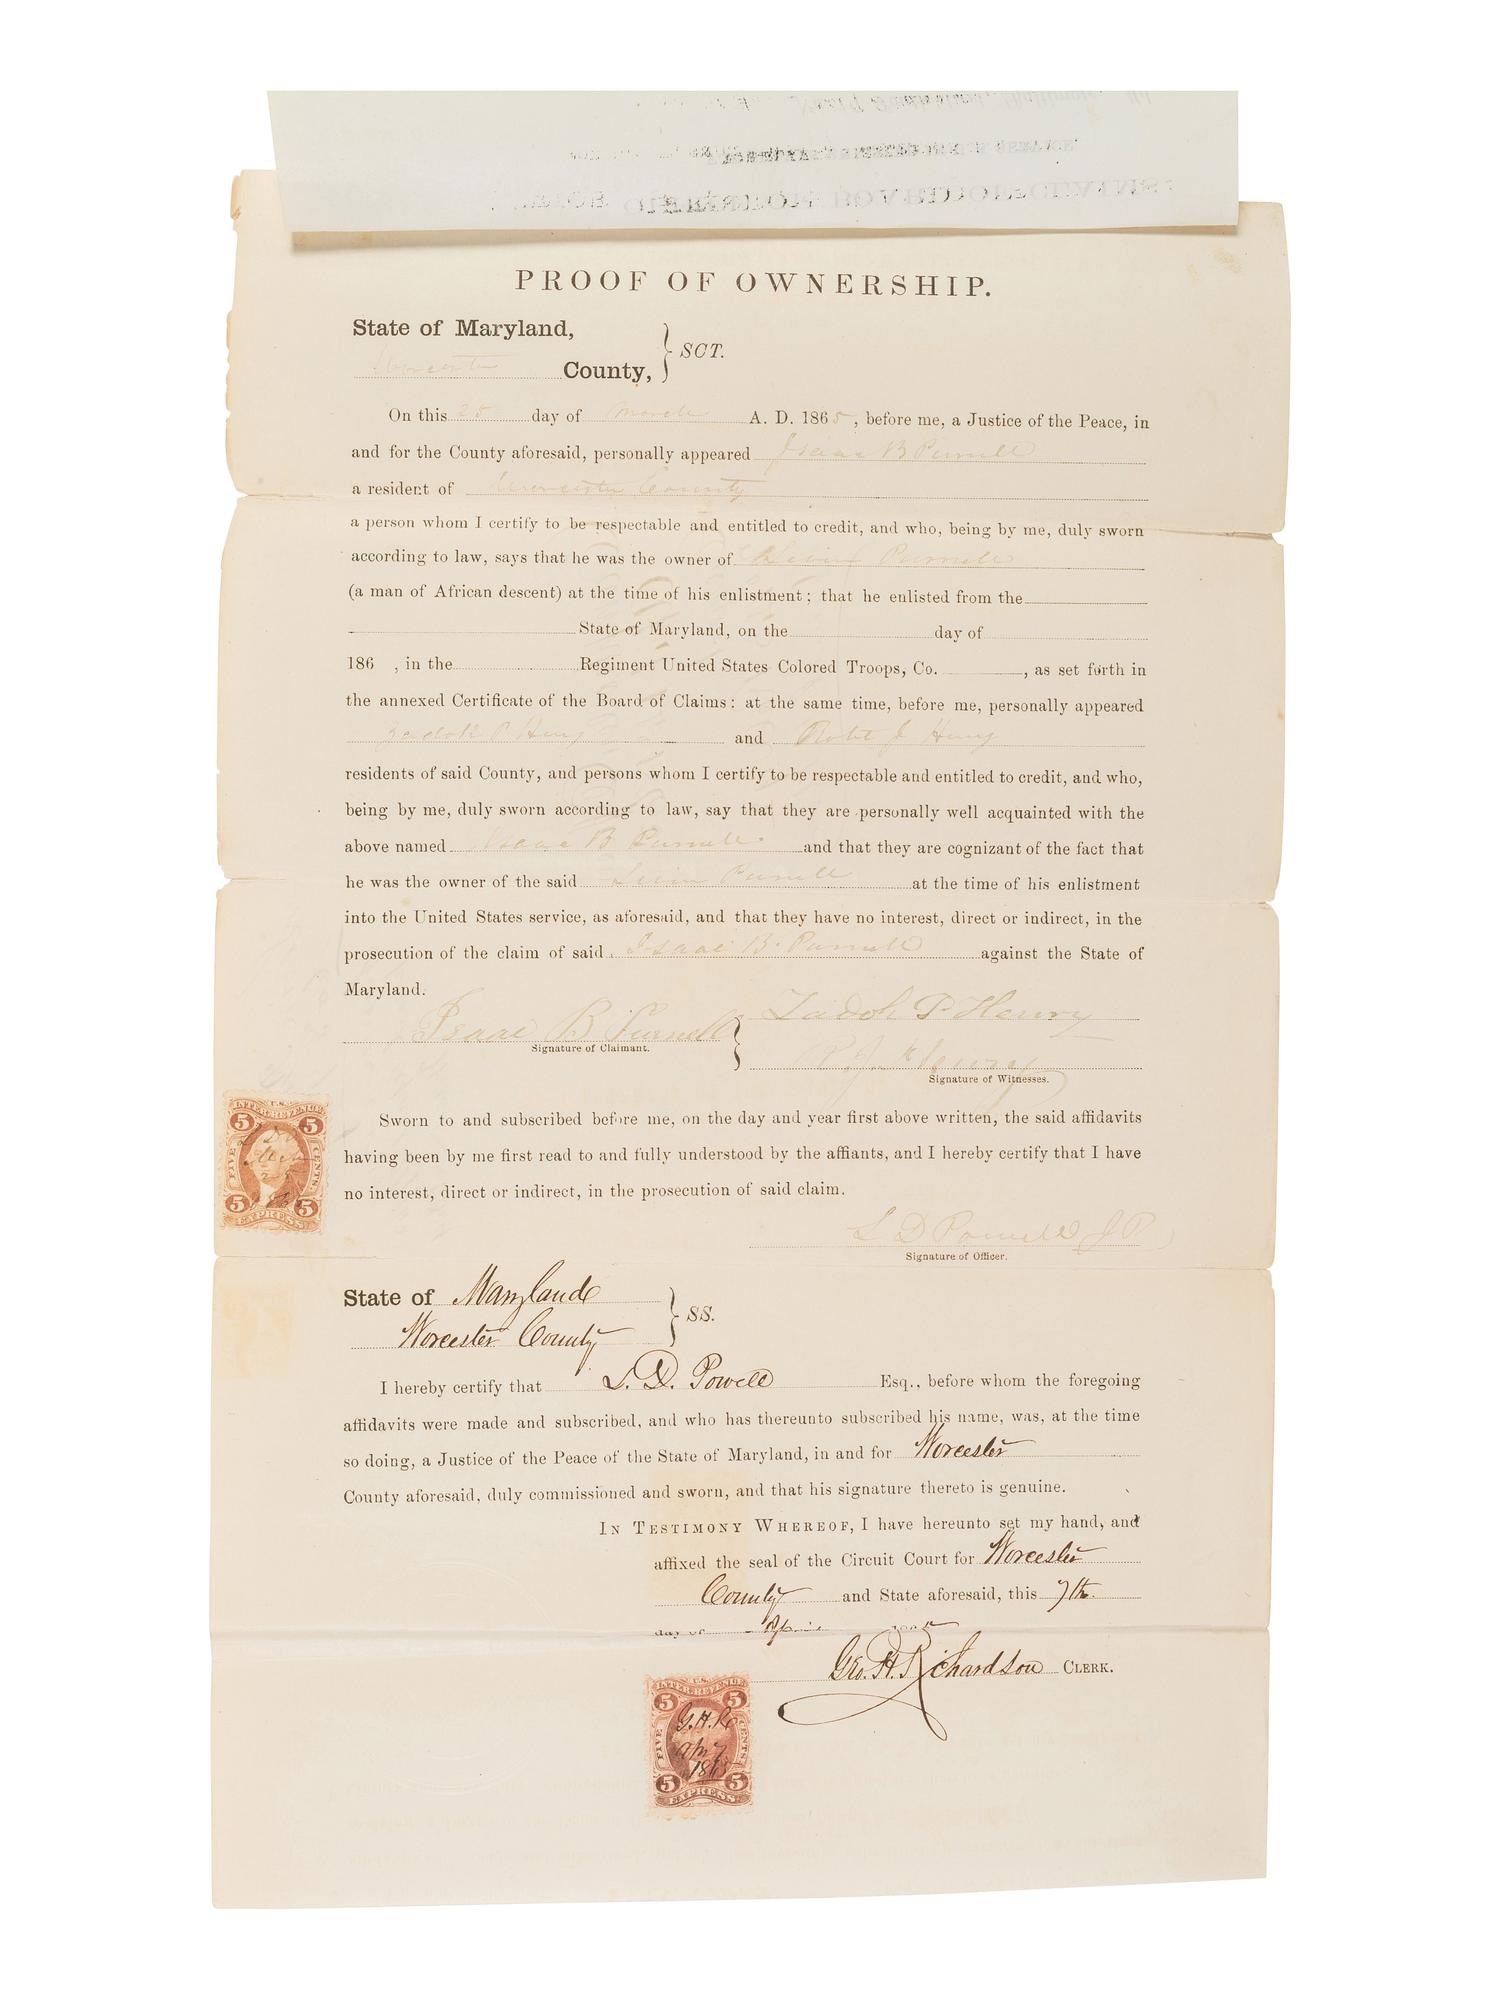 PROOF OF OWNERSHIP.
State of Maryland,
Worcester County, } SCT.
On this 25 day of March A. D. 1865, before me, a Justice of the Peace, in
and for the County aforesaid, personally appeared Isaac B Purnell
a resident of Worcester County
a person whom I certify to be respectable and entitled to credit, and who, being by me, duly sworn
according to law, says that he was the owner of Levin Purnell
(a man of African descent) at the time of his enlistment; that he enlisted from the
State of Maryland, on the day of
186 , in the Regiment United States Colored Troops, Co. , as set forth in
the annexed Certificate of the Board of Claims: at the same time, before me, personally appeared
Zadok P Henry and Robt J Henry
residents of said County, and persons whom I certify to be respectable and entitled to credit, and who,
being by me, duly sworn according to law, say that they are personally well acquainted with the
above named Isaac B Purnell and that they are cognizant of the fact that
he was the owner of the said Levin Purnell at the time of his enlistment
into the United States service, as aforesaid, and that they have no interest, direct or indirect, in the
prosecution of the claim of said Isaac B. Purnell against the State of
Maryland.
Isaac B Purnell } Zadok P Henry
Signature of Claimant.
R J Henry
Signature of Witnesses.
Sworn to and subscribed before me, on the day and year first above written, the said affidavits
having been by me first read to and fully understood by the affiants, and I hereby certify that I have
no interest, direct or indirect, in the prosecution of said claim.
L D Powell J P
Signature of Officer.
U.S.
INTER. REVENUE
5 5
FIVE CENTS
5 5
EXPRESS
State of Maryland
Worcester County } SS.
I hereby certify that L. D. Powell Esq., before whom the foregoing
affidavits were made and subscribed, and who has thereunto subscribed his name, was, at the time
so doing, a Justice of the Peace of the State of Maryland, in and for Worcester
County aforesaid, duly commissioned and sworn, and that his signature thereto is genuine.
IN TESTIMONY WHEREOF, I have hereunto set my hand, and
affixed the seal of the Circuit Court for Worcester
County and State aforesaid, this 7th
day of April 1865
Geo. H. Richardson CLERK.
U.S.
INTER. REVENUE
5 5
G.H.R.
FIVE CENTS
Apr 7
1865
5 5
EXPRESS